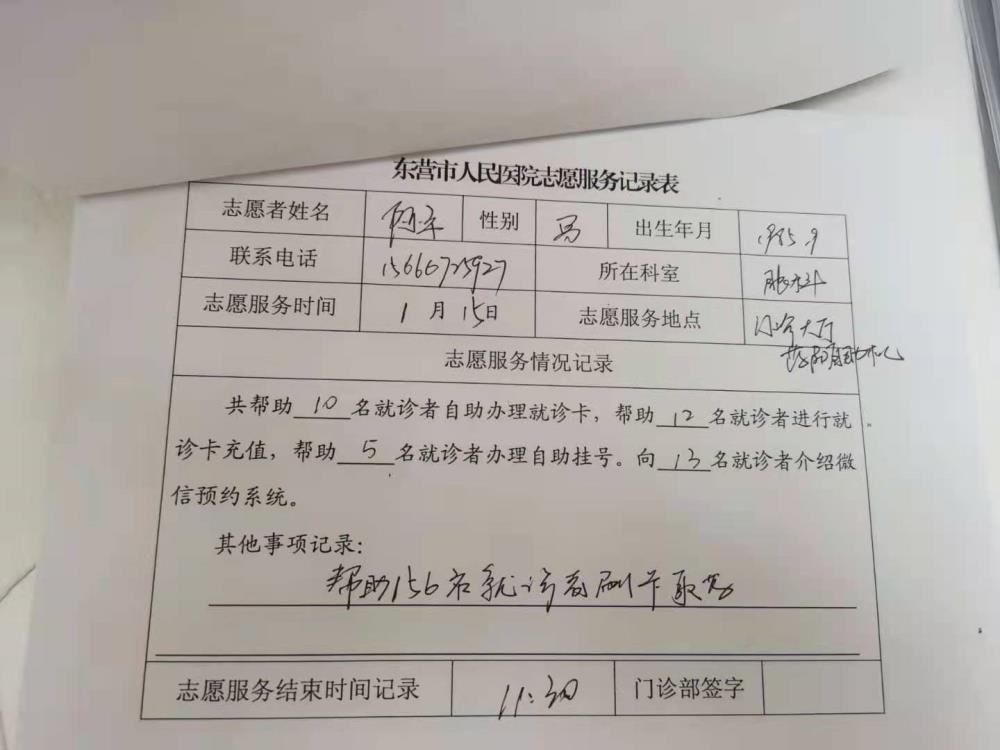 东营市人民医院志愿服务记录表
志愿者姓名 性别 男 出生年月 1985.9
联系电话 15666725927 所在科室 眼科
志愿服务时间 1月15日 志愿服务地点 门诊大厅
志愿服务情况记录
共帮助10名就诊者自助办理就诊卡，帮助12名就诊者进行就
诊卡充值，帮助5名就诊者办理自助挂号。向13名就诊者介绍微
信预约系统。
其他事项记录：
帮助156名就诊者刷卡取药
志愿服务结束时间记录 11:30 门诊部签字